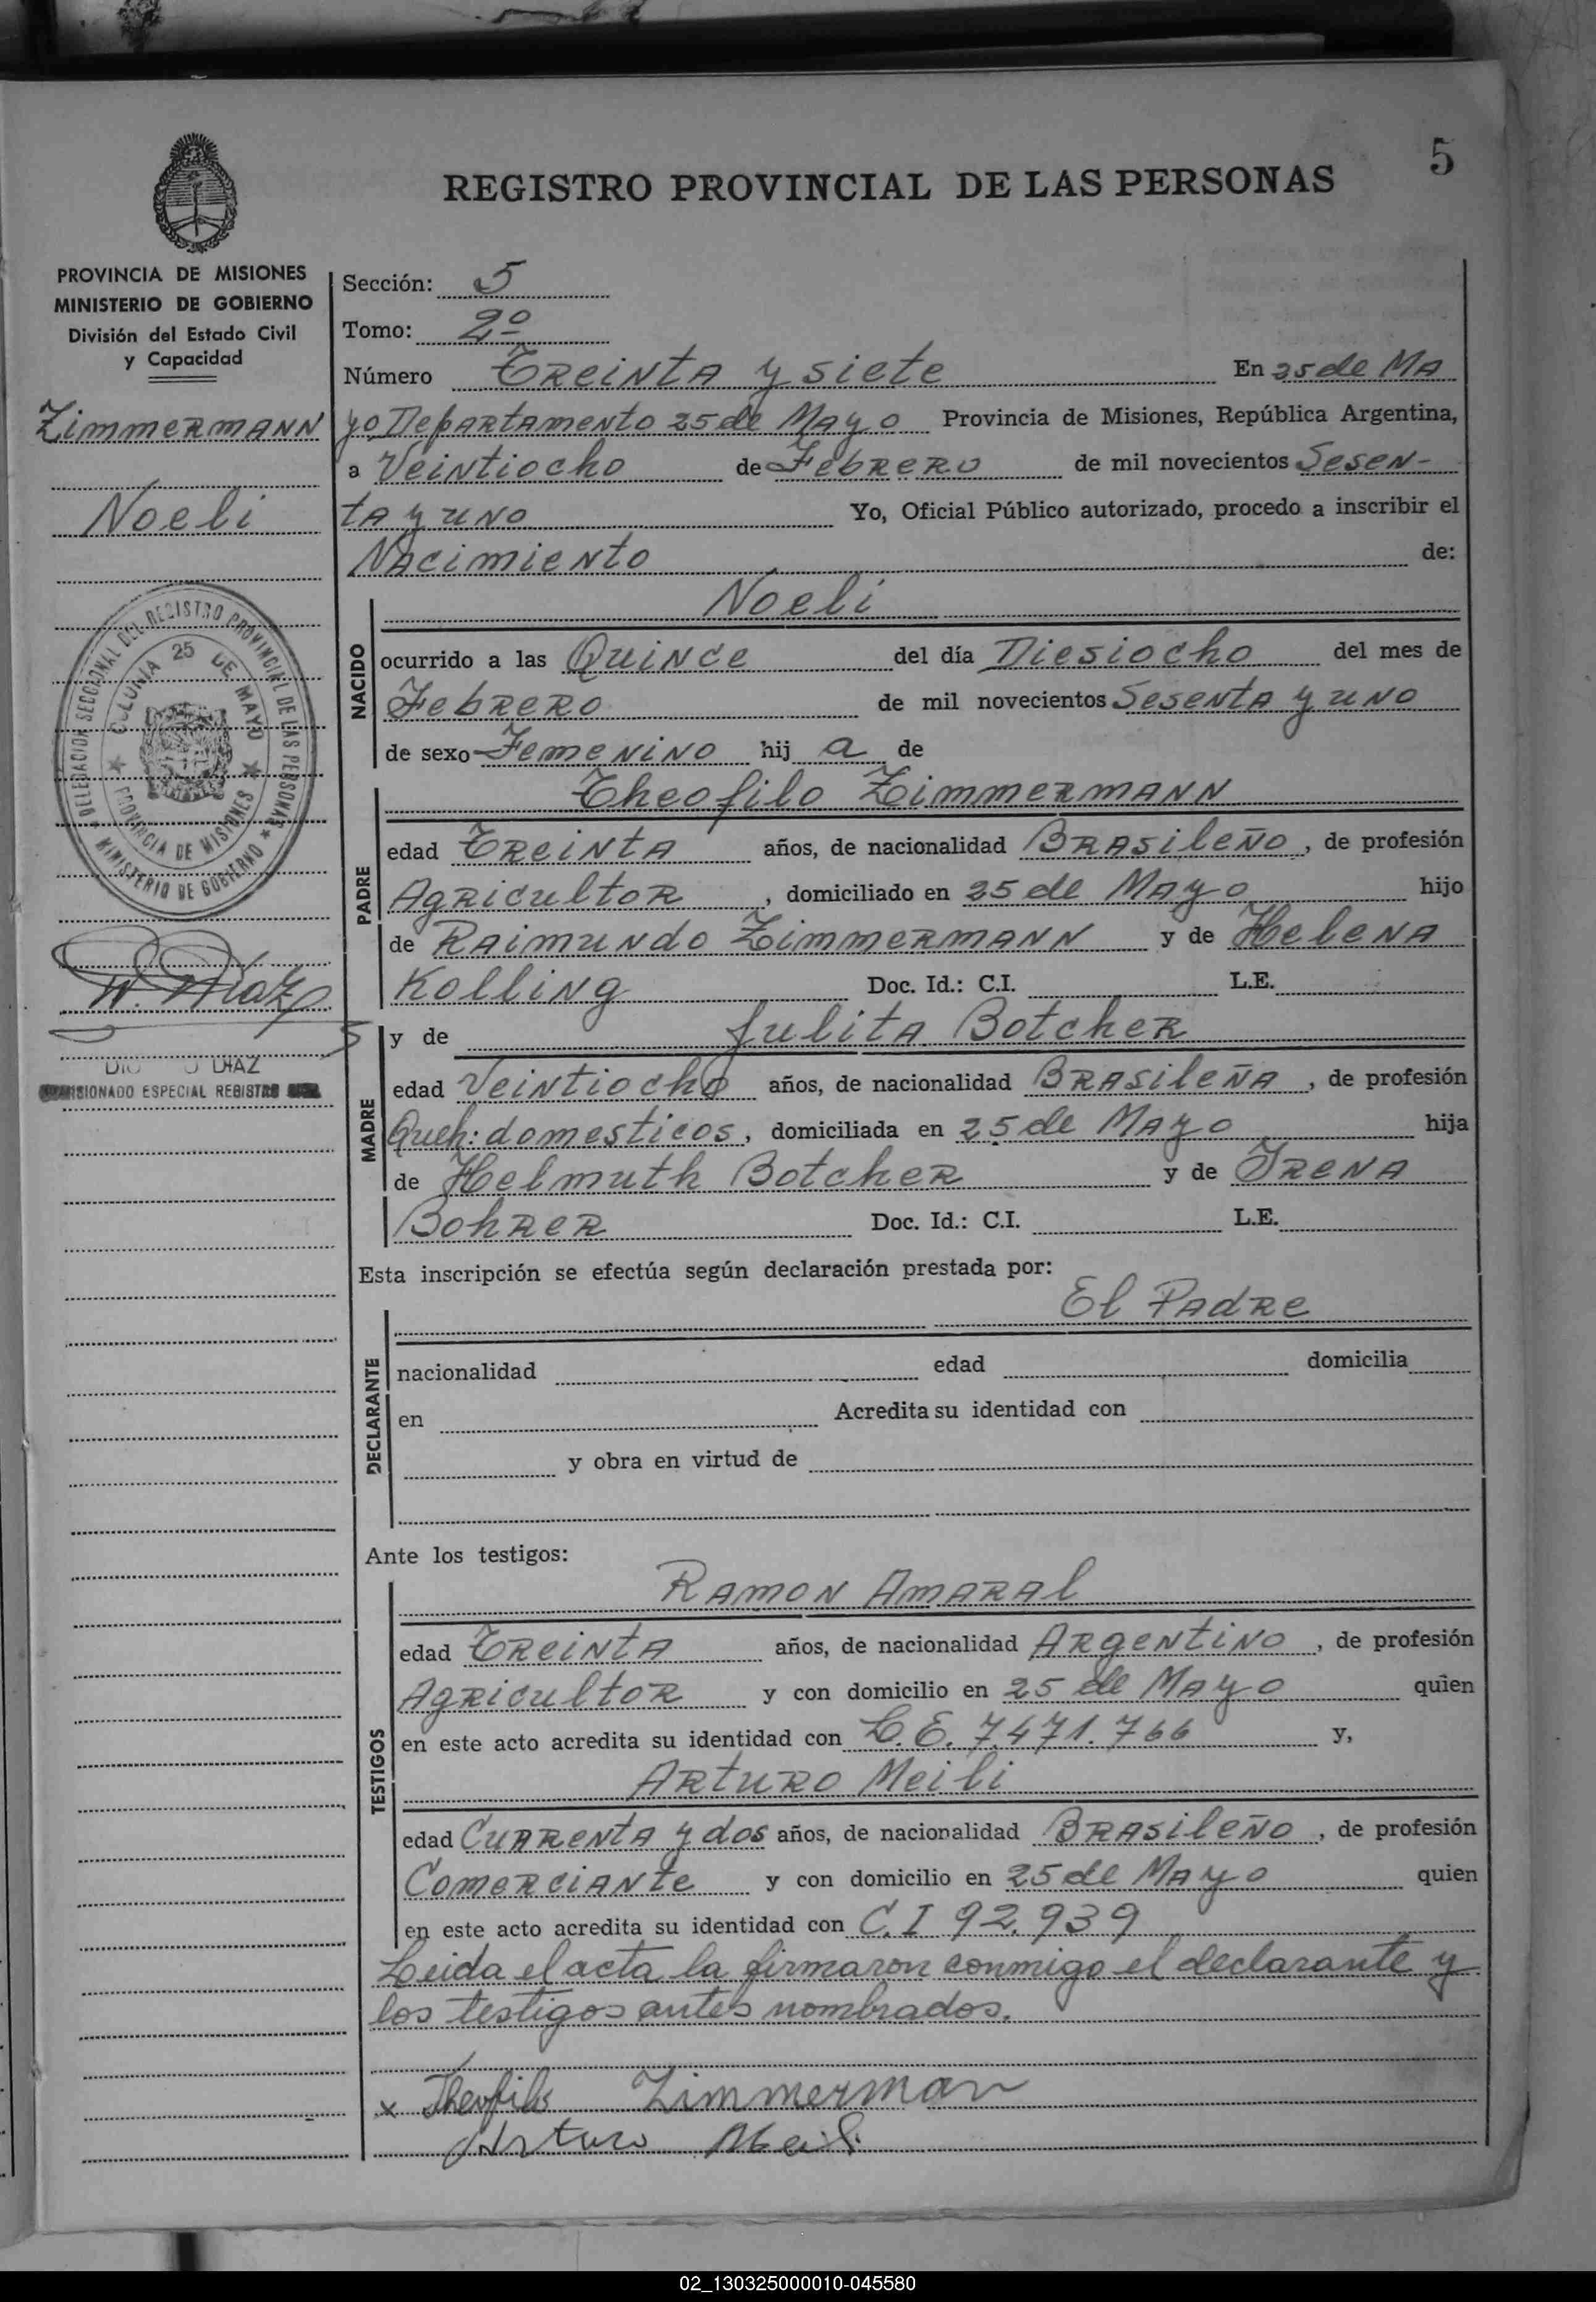 5
REGISTRO PROVINCIAL DE LAS PERSONAS
PROVINCIA DE MISIONES
MINISTERIO DE GOBIERNO
División del Estado Civil
y Capacidad
Zimmermann
Noeli
DELEGACION SECCIONAL DEL REGISTRO PROVINCIAL DE LAS PERSONAS
MINISTERIO DE GOBIERNO
COLONIA 25 DE MAYO
PROVINCIA DE MISIONES
DIAZ
COMISIONADO ESPECIAL REGISTRO
Sección: 5
Tomo: 2º
Número Treinta y siete En 25 de Ma
yo Departamento 25 de Mayo Provincia de Misiones, República Argentina,
a Veintiocho de Febrero de mil novecientos Sesen-
ta y uno Yo, Oficial Público autorizado, procedo a inscribir el
Nacimiento de:
Noeli
NACIDO
ocurrido a las Quince del día Diesiocho del mes de
Febrero de mil novecientos Sesenta y uno
de sexo Femenino hij a de
Theofilo Zimmermann
PADRE
edad Treinta años, de nacionalidad Brasileño, de profesión
Agricultor, domiciliado en 25 de Mayo hijo
de Raimundo Zimmermann y de Helena
Kolling Doc. Id.: C.I. L.E.
y de Julita Botcher
MADRE
edad Veintiocho años, de nacionalidad Brasileña, de profesión
Queh: domesticos, domiciliada en 25 de Mayo hija
de Helmuth Botcher y de Irena
Bohrer Doc. Id.: C.I. L.E.
Esta inscripción se efectúa según declaración prestada por:
El Padre
DECLARANTE
nacionalidad edad domicilia
en Acredita su identidad con
y obra en virtud de
Ante los testigos:
Ramon Amaral
TESTIGOS
edad Treinta años, de nacionalidad Argentino, de profesión
Agricultor y con domicilio en 25 de Mayo quien
en este acto acredita su identidad con L.E. 7.471.766 y,
Arturo Meili
edad Cuarenta y dos años, de nacionalidad Brasileño, de profesión
Comerciante y con domicilio en 25 de Mayo quien
en este acto acredita su identidad con C.I 92.939
Leida el acta la firmaron conmigo el declarante y
los testigos antes nombrados.
x Theofilo Zimmerman
Arturo Meili
02_130325000010-045580